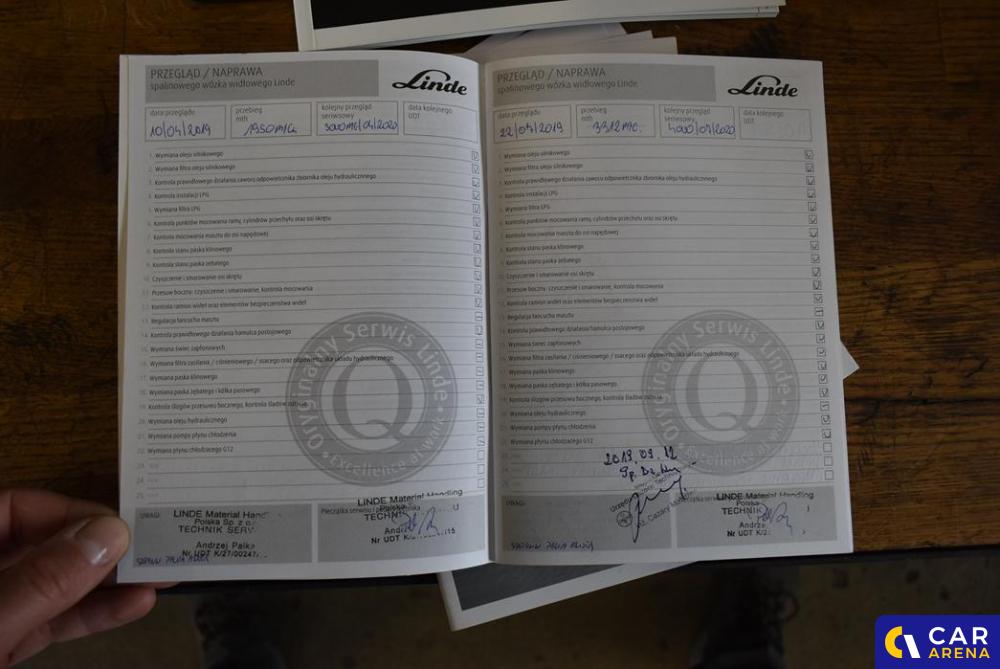 PRZEGLĄD / NAPRAWA
spalinowego wózka widłowego Linde
Linde
data przeglądu
10/04/2019
przebieg
mth
1950 MTG
kolejny przegląd
serwisowy
data kolejnego
UDT
1. Wymiana oleju silnikowego
2. Wymiana filtra oleju silnikowego
3. Kontrola prawidłowego działania zaworu odpowietrznika zbiornika oleju hydraulicznego
4. Kontrola instalacji LPG
5. Wymiana filtra LPG
6. Kontrola punktów mocowania ramy, cylindrów przechyłu oraz osi skrętu
7. Kontrola mocowania masztu do osi napędowej
8. Kontrola stanu paska klinowego
9. Kontrola stanu paska zębatego
10. Czyszczenie i smarowanie osi skrętu
11. Przesuw boczny: czyszczenie i smarowanie, kontrola mocowania
12. Kontrola ramion wideł oraz elementów bezpieczeństwa wideł
13. Regulacja łańcucha masztu
14. Kontrola prawidłowego działania hamulca postojowego
15. Wymiana świec zapłonowych
16. Wymiana filtra zasilania / ciśnieniowego / ssącego oraz odpowietrznika układu hydraulicznego
17. Wymiana paska klinowego
18. Wymiana paska zębatego i kółka pasowego
19. Kontrola ślizgów przesuwu bocznego, kontrola śladów zużycia
20. Wymiana oleju hydraulicznego
21. Wymiana pompy płynu chłodzenia
22. Wymiana płynu chłodzącego G12
23.
24.
25.
Oryginalny Serwis Linde
Q
Excellence at work
UWAGI:
LINDE Material Hand
Polska Sp. z o.
TECHNIK SERW
Andrzej Pałka
Nr UDT K/27/00247
Pieczątka serwisu i
LINDE Material Handling
Polska
TECHNIK
Andrz
Nr UDT K/2
PRZEGLĄD / NAPRAWA
spalinowego wózka widłowego Linde
Linde
data przeglądu
22/07/2019
przebieg
mth
3312
kolejny przegląd
serwisowy
data kolejnego
UDT
1. Wymiana oleju silnikowego
2. Wymiana filtra oleju silnikowego
3. Kontrola prawidłowego działania zaworu odpowietrznika zbiornika oleju hydraulicznego
4. Kontrola instalacji LPG
5. Wymiana filtra LPG
6. Kontrola punktów mocowania ramy, cylindrów przechyłu oraz osi skrętu
7. Kontrola mocowania masztu do osi napędowej
8. Kontrola stanu paska klinowego
9. Kontrola stanu paska zębatego
10. Czyszczenie i smarowanie osi skrętu
11. Przesuw boczny: czyszczenie i smarowanie, kontrola mocowania
12. Kontrola ramion wideł oraz elementów bezpieczeństwa wideł
13. Regulacja łańcucha masztu
14. Kontrola prawidłowego działania hamulca postojowego
15. Wymiana świec zapłonowych
16. Wymiana filtra zasilania / ciśnieniowego / ssącego oraz odpowietrznika układu hydraulicznego
17. Wymiana paska klinowego
18. Wymiana paska zębatego i kółka pasowego
19. Kontrola ślizgów przesuwu bocznego, kontrola śladów zużycia
20. Wymiana oleju hydraulicznego
21. Wymiana pompy płynu chłodzenia
22. Wymiana płynu chłodzącego G12
Oryginalny Serwis Linde
Q
Excellence at work
2019.09.12
UWAGI:
LINDE Material Handling
Polska
TECHNIK
Andrze
Nr UDT K/2
CAR
ARENA